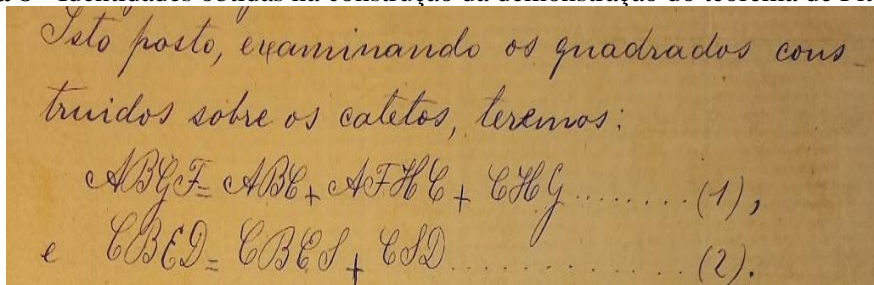 Isto posto, examinando os quadrados cons-
truidos sobre os catetos, teremos:
ABGF = ABC + AFHC + CHG ........ (1),
e CBED = CBES + CSD .............. (2).